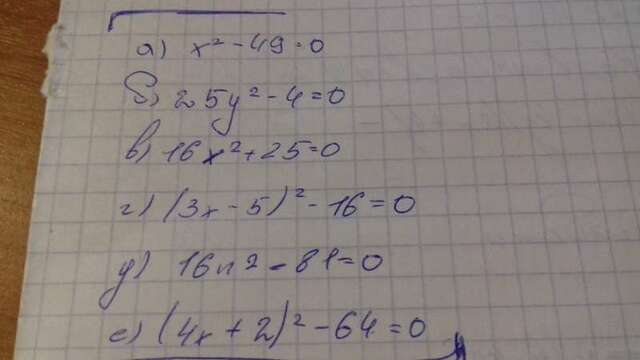 а) x² - 49 = 0
б) 25y² - 4 = 0
в) 16x² + 25 = 0
г) (3x - 5)² - 16 = 0
д) 16n² - 81 = 0
е) (4x + 2)² - 64 = 0